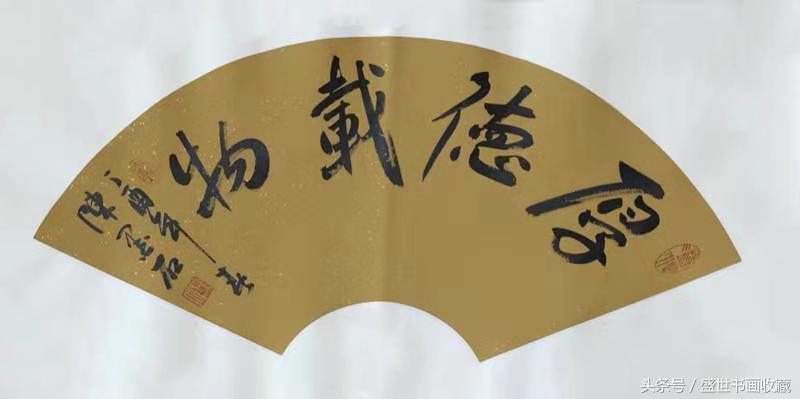 厚德載物
丁酉年春
陳石
头条号／盛世书画收藏